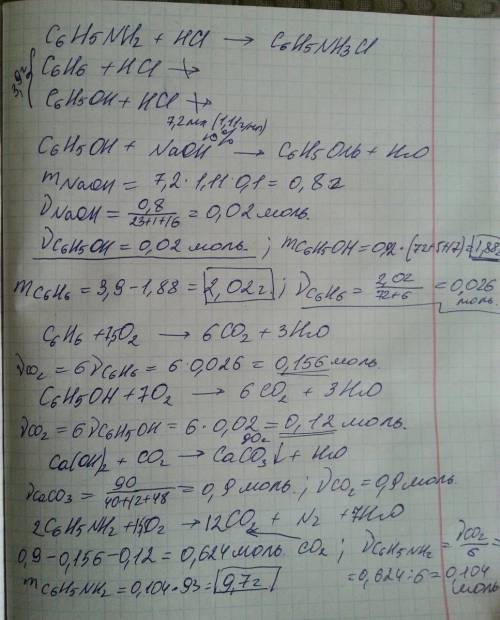 C6H5NH2 + HCl → C6H5NH3Cl
3,9г { C6H6 + HCl ↛
C6H5OH + HCl ↛
7,2мл (1,11г/мл)
10%
C6H5OH + NaOH → C6H5ONa + H2O
mNaOH = 7,2·1,11·0,1 = 0,8г
νNaOH = 0,8/23+1+16 = 0,02 моль.
νC6H5OH = 0,02 моль ; mC6H5OH = 0,02·(72+5+17) = 1,88г
mC6H6 = 3,9-1,88 = 2,02г. ; νC6H6 = 2,02/72+6 = 0,026 моль.
C6H6 + 7,5O2 → 6CO2 + 3H2O
νCO2 = 6νC6H6 = 6·0,026 = 0,156 моль.
C6H5OH + 7O2 → 6CO2 + 3H2O
νCO2 = 6νC6H5OH = 6·0,02 = 0,12 моль.
90г
Ca(OH)2 + CO2 → CaCO3↓ + H2O
νCaCO3 = 90/40+12+48 = 0,9 моль ; νCO2 = 0,9 моль.
2C6H5NH2 + 15O2 → 12CO2 + N2 + 7H2O
0,9-0,156-0,12 = 0,624 моль CO2 ; νC6H5NH2 = νCO2/6 =
= 0,624÷6 = 0,104 моль
mC6H5NH2 = 0,104·93 = 9,7г